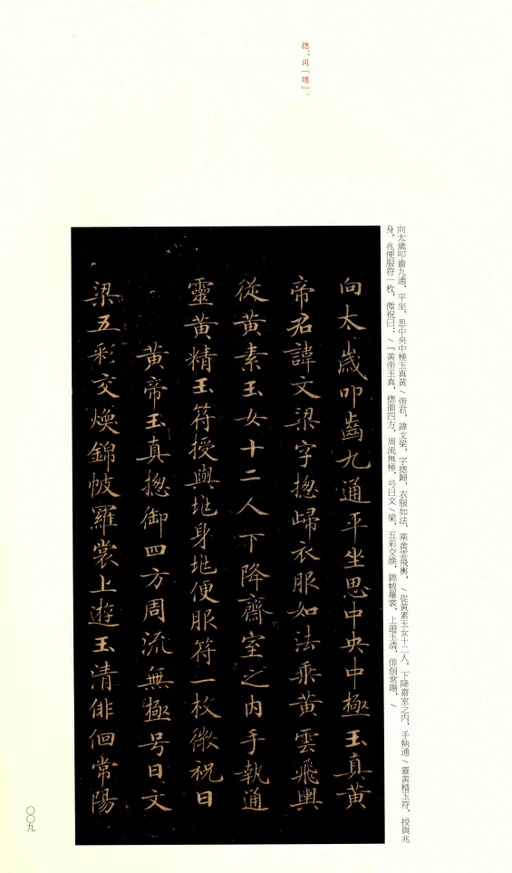 揔：同「總」。
向太歲叩齒九通，平坐，思中央中極玉真黃／帝君，諱文梁，字揔歸，衣服如法，乘黃雲飛輿，／從黃素玉女十二人，下降齋室之內，手執通／靈黃精玉符，授與兆
身，兆便服符一枚，微祝曰：／『黃帝玉真，揔御四方，周流無極，号曰文／梁，五彩交煥，錦帔羅裳，上遊玉清，俳佪常陽，／
向太歲叩齒九通平坐思中央中極玉真黃
帝君諱文梁字揔歸衣服如法乘黃雲飛輿
從黃素玉女十二人下降齋室之內手執通
靈黃精玉符授與兆身兆便服符一枚微祝曰
黃帝玉真揔御四方周流無極号曰文
梁五彩交煥錦帔羅裳上遊玉清俳佪常陽
〇〇九